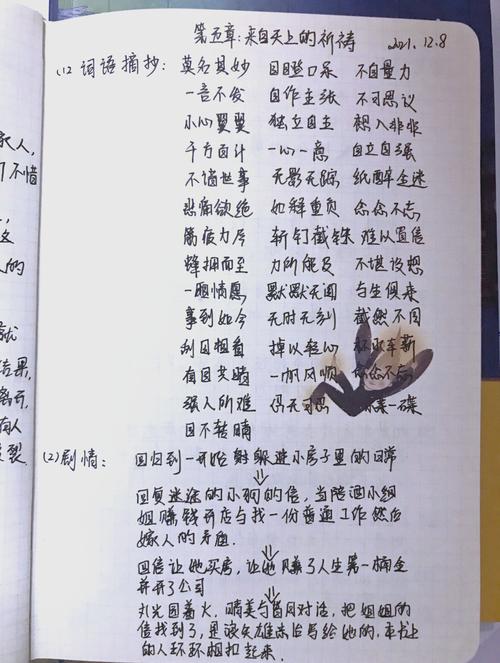 家人,
不惜
的
就
结果,
离开,
有人
裂
第五章:来自天上的祈祷 2021.12.8
(1) 词语摘抄: 莫名其妙 目瞪口呆 不自量力
一言不发 自作主张 不可思议
小心翼翼 独立自主 想入非非
千方百计 一心一意 自立自强
不谙世事 无影无踪 纸醉金迷
悲痛欲绝 如释重负 念念不忘
筋疲力尽 斩钉截铁 难以置信
蜂拥而至 力所能及 不堪设想
一厢情愿 默默无闻 与生俱来
事到如今 无时无刻 截然不同
刮目相看 掉以轻心 杯水车薪
有目共睹 一帆风顺 念念不忘
强人所难 一碟
目不转睛
(2) 剧情: 回归到一开始 躲避小房子里的日常
回复迷途的小狗的信,当陪酒小姐
姐赚钱开店与找一份普通工作然后
嫁人的矛盾.
回信让她买房,让她赚了人生第一桶金
并开了公司
丸光园着火,晴美与皆月对话,把姐姐的
信找到了,是浪矢雄治写给她的,本书上
的人环环相扣起来.